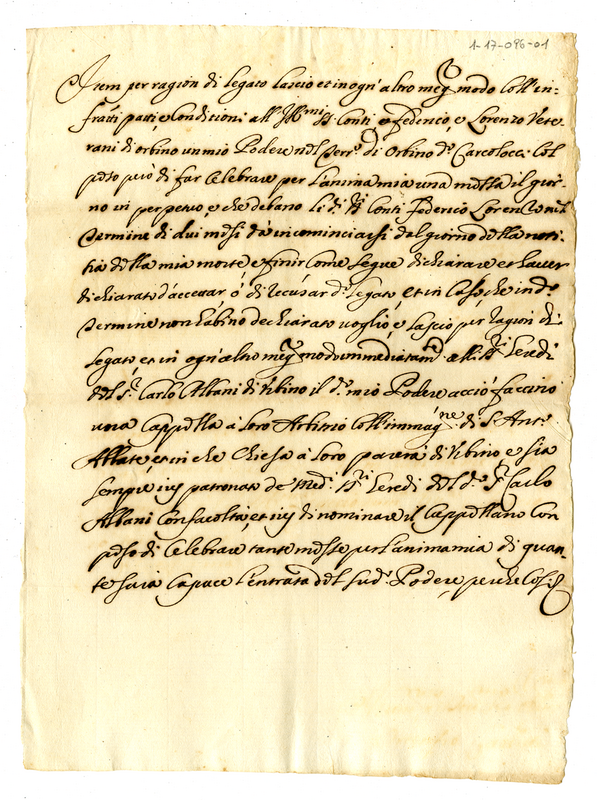 1-17-096-01
Item per ragion di legato lascio et in ogn'altro megl. modo coll'in-
fratti patti e condizioni all'Ill.mi SS. Conti Federico, e Lorenzo Vete-
rani di Orbino un mio Podere nel Terr.o di Orbino d.o Carcolocci col
peso però di far celebrare per l'anima mia una messa il gior-
no in perpetuo, e che debano li d.i SS. Conti Federico Lorenzo nel
termine di dui mesi da incominciarsi dal giorno della noti-
tia della mia morte e finir come segue dichiarare et haver
dichiarato d'accettar ò di recusar d.o legato et in caso che in d.o
termine non habino dechiarato voglio, e lascio per ragion di
legato, et in ogn'altro megl. modo immediatam.te alli SS.ri Heredi
del S.r Carlo Albani di Urbino il d.o mio Podere acciò faccino
una Cappella à loro Arbitrio coll'immag.ne di S. Ant.o
Abbate, et in che Chiesa à loro parerà di Urbino e sia
sempre ius patronato de Med.i SS.ri Heredi del d.o S.r Carlo
Albani con facoltà, et ius di nominare il Cappellano con
peso di celebrare tante messe per l'anima mia di quan-
te sarà capace l'entrata del sud.o Podere, perche così